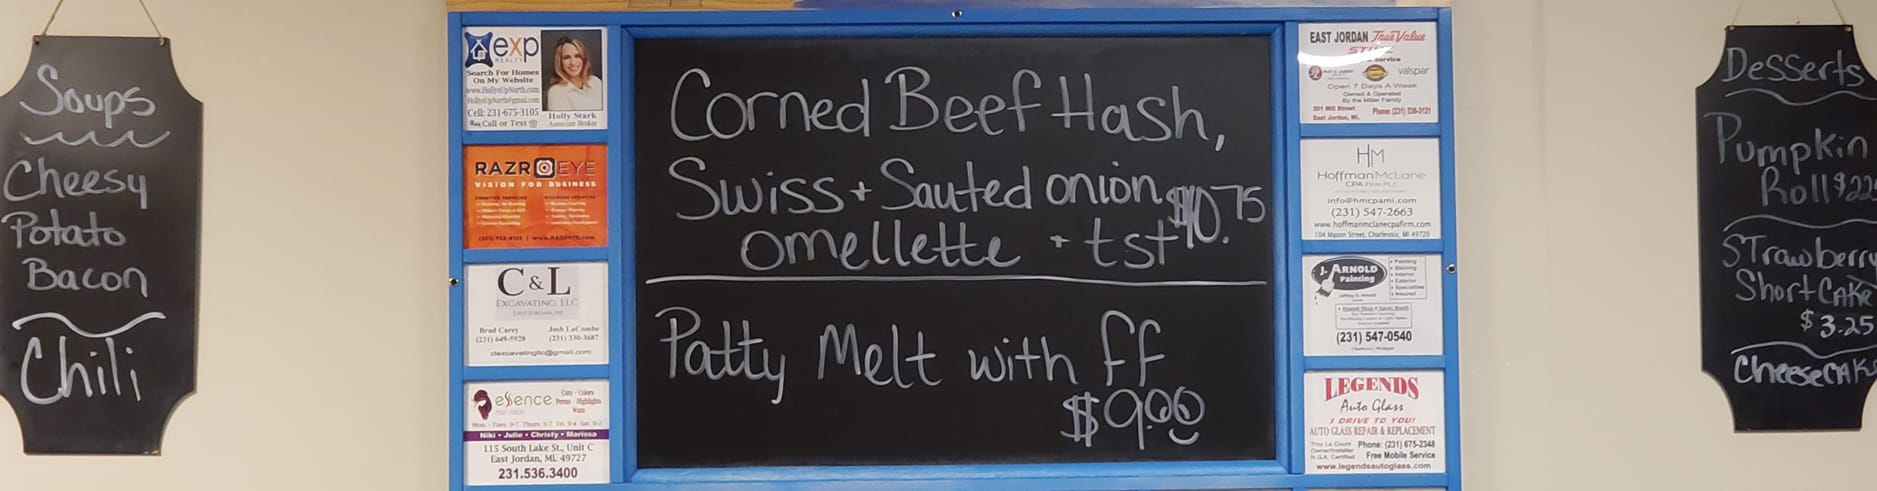 Soups
Cheesy
Potato
Bacon
Chili
exp
REALTY
Search For Homes
On My Website
www.HollysUpNorth.com
HollysUpNorth@gmail.com
Cell: 231-675-3105
Call or Text
Holly Stark
Associate Broker
RAZR EYE
VISION FOR BUSINESS
C & L
EXCAVATING, LLC
EAST JORDAN, MI
Brad Carey
Josh LaCombe
(231) 649-5928
(231) 330-3687
clexcavatingllc@gmail.com
essence
hair salon
Cuts - Colors
Perms - Highlights
Waxs
Mon. - Tues. 9-7 Thurs. 9-7 Fri. 9-4 Sat. 9-2
Niki · Julie · Christy · Marissa
115 South Lake St., Unit C
East Jordan, MI. 49727
231.536.3400
Corned Beef Hash,
Swiss + Sauted onion
omellette + tst $10.75
Patty Melt with ff
$9.00
EAST JORDAN True Value
Service
valspar
Open 7 Days A Week
Owned & Operated
By the Miller Family
201 Mill Street
East Jordan, MI.
HM
HoffmanMcLane
CPA Firm PLC
info@hmcpami.com
(231) 547-2663
www.hoffmanmclanecpafirm.com
104 Mason Street, Charlevoix, MI 49720
J. ARNOLD
Painting
• Painting
• Staining
• Interior
• Exterior
• Specialties
• Insured
(231) 547-0540
LEGENDS
Auto Glass
I DRIVE TO YOU!
AUTO GLASS REPAIR & REPLACEMENT
Troy La Count
Owner/Installer
N.G.A. Certified
Phone: (231) 675-2348
Free Mobile Service
www.legendsautoglass.com
Desserts
Pumpkin
Roll $22
STrawberry
ShortCAKe
$3.25
CheeseCAKe